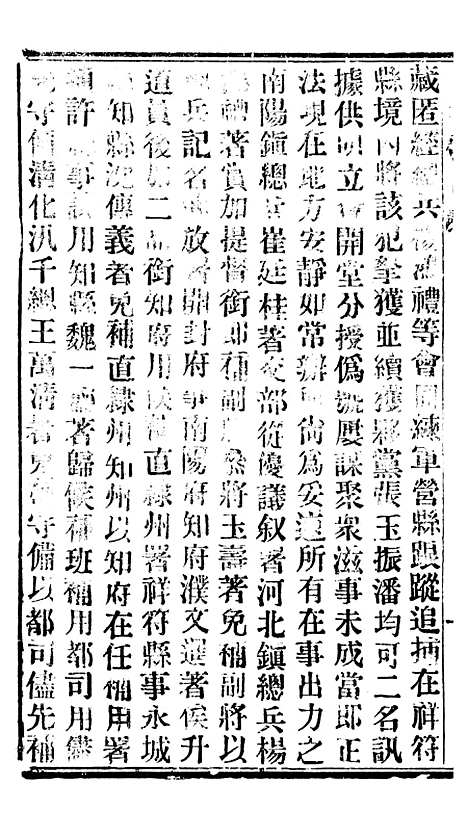 藏匿經總兵楊禮等會同練軍營縣跟蹤追捕在祥符
縣境內將該犯拏獲並續獲夥黨張玉振潘均可二名訊
據供同立會開堂分授僞號屢謀聚衆滋事未成當卽正
法現在地方安靜如常辦尙爲妥速所有在事出力之
南陽鎭總兵崔廷桂著交部從優議敘署河北鎭總兵楊
禮著賞加提督銜卽補副將玉壽著免補副將以
兵記名放署開封府事南陽府知府濮文暹著俟升
道員後加二品銜知府用直隸州署祥符縣事永城
知縣沈傳義著免補直隸州知州以知府在任補用署
許事試用知縣魏一著歸候補班補用都司用儘
守備溝化汛千總王萬淸著免補守備以都司儘先補